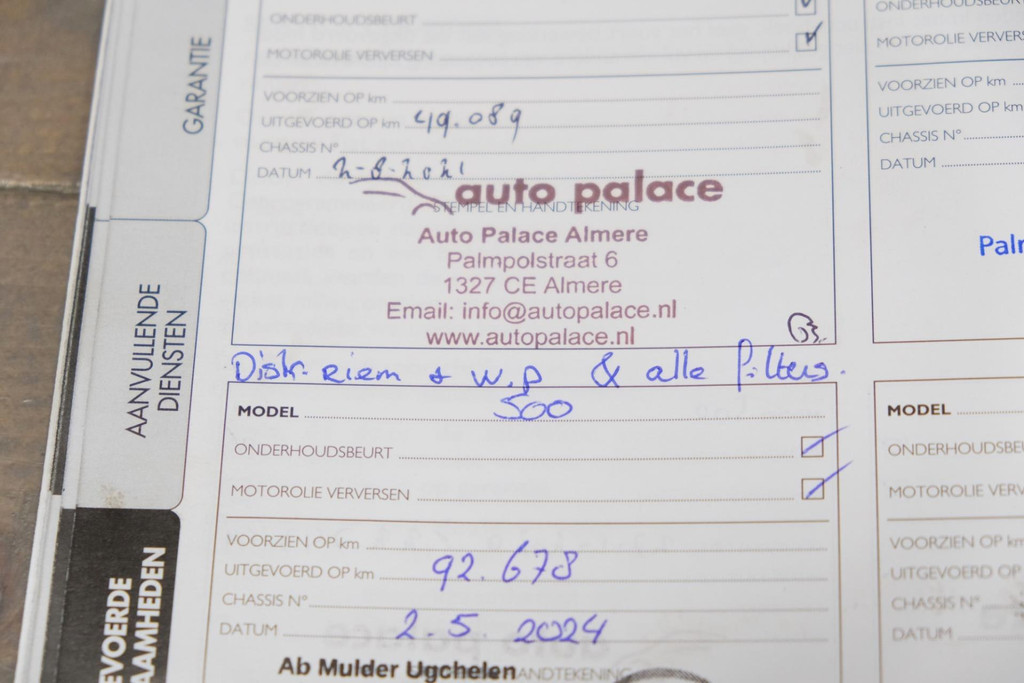 GARANTIE
AANVULLENDE
DIENSTEN
EVOERDE
AAMHEDEN
ONDERHOUDSBEURT
MOTOROLIE VERVERSEN
VOORZIEN OP km
UITGEVOERD OP km 49.089
CHASSIS N°
DATUM 2-8-2021
STEMPEL EN HANDTEKENING
auto palace
Auto Palace Almere
Palmpolstraat 6
1327 CE Almere
Email: info@autopalace.nl
www.autopalace.nl
Distr. Riem + W.P & alle filters.
MODEL 500
ONDERHOUDSBEURT
MOTOROLIE VERVERSEN
VOORZIEN OP km
UITGEVOERD OP km 92.678
CHASSIS N°
DATUM 2.5.2024
Ab Mulder Ugchelen
HANDTEKENING
ONDERHOUDSBEUR
MOTOROLIE VERVERS
VOORZIEN OP km
UITGEVOERD OP km
CHASSIS N°
DATUM
Palm
MODEL
ONDERHOUDSBEU
MOTOROLIE VERV
VOORZIEN OP km
UITGEVOERD OP
CHASSIS N°
DATUM